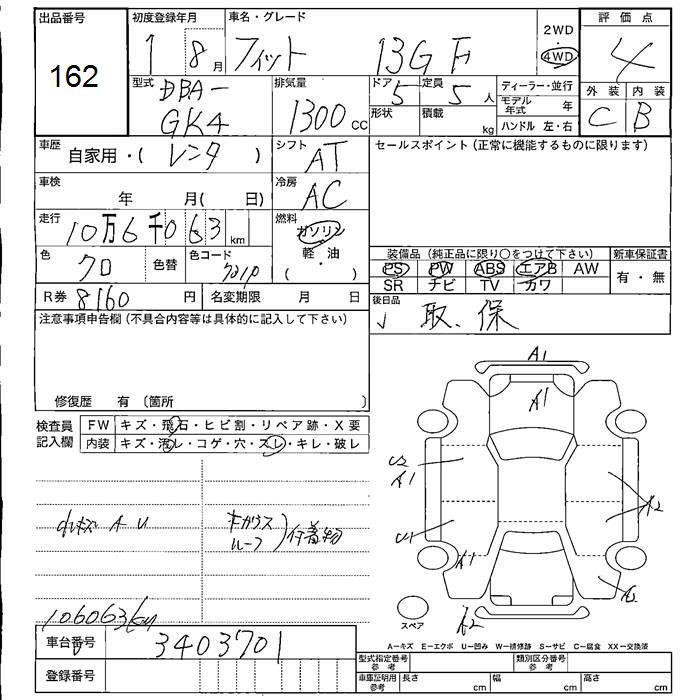 出品番号 初度登録年月 車名・グレード 2WD 評価点
162 1 8月 フィット 13G F 4WD 4
型式 排気量 ドア 定員 ディーラー・並行 外装 内装
DBA- 5 5人 モデル年式 年 C B
GK4 1300cc 形状 積載 kg ハンドル 左・右
車歴 自家用・( レンタ ) シフト AT セールスポイント(正常に機能するものに限ります)
車検 年 月( 日) 冷房 AC
走行 10万6千063km 燃料 ガソリン
軽・油
( )
色 クロ 色替 色コード 装備品(純正品に限り○をつけて下さい) 新車保証書
PS PW ABS エアB AW 有・無
SR ナビ TV カワ
R券 8160円 名変期限 月 日 後日品
取、保
注意事項申告欄(不具合内容等は具体的に記入して下さい)
修復歴 有 〔箇所 〕
検査員記入欄 FW キズ・飛石・ヒビ割・リペア跡・X要
内装 キズ・汚レ・コゲ・穴・スレ・キレ・破レ
A1
A1
U2
A1
A2
小キズ A U キガウス
ルーフ 付着物
U1
A1
106063km
スペア A2
A－キズ E－エクボ U－凹み W－補修跡 S－サビ C－腐食 XX－交換済
車台番号 3403701
型式指定番号 参考 類別区分番号 参考
登録番号 車庫証明用 参考 長さ cm 幅 cm 高さ cm